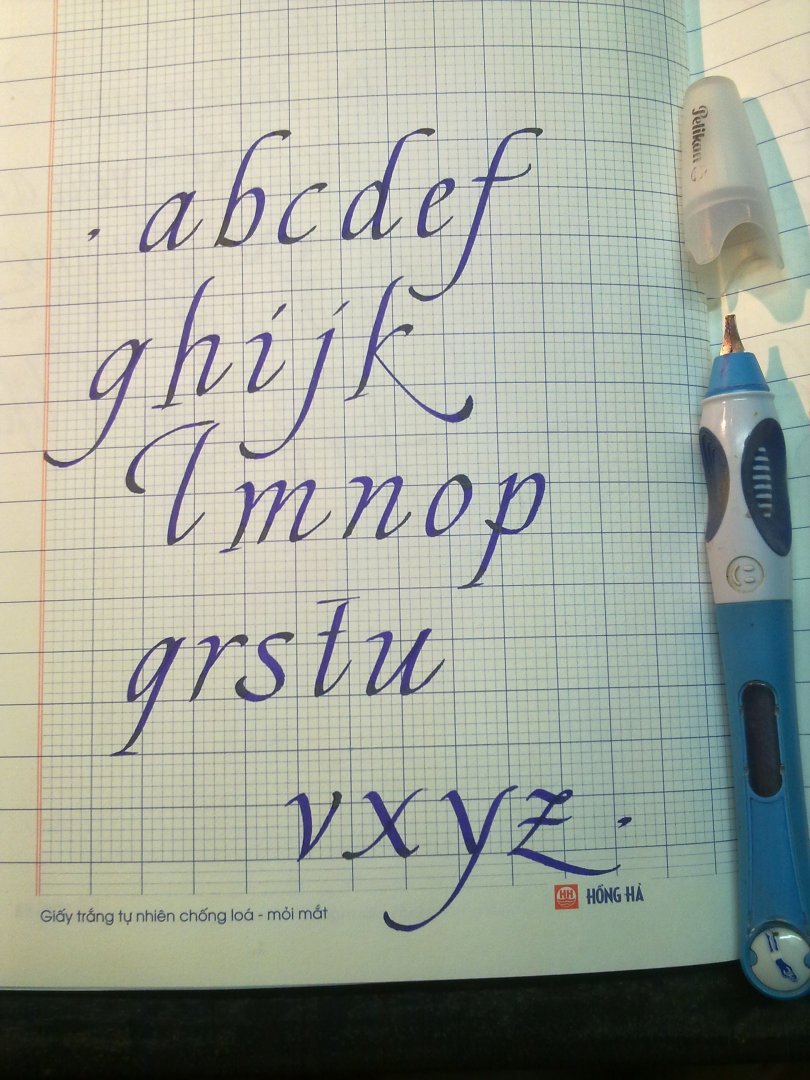 · a b c d e f
g h i j k
l m n o p
q r s t u
v x y z ·
Giấy trắng tự nhiên chống loá - mỏi mắt
HH HỒNG HÀ
Pelikan